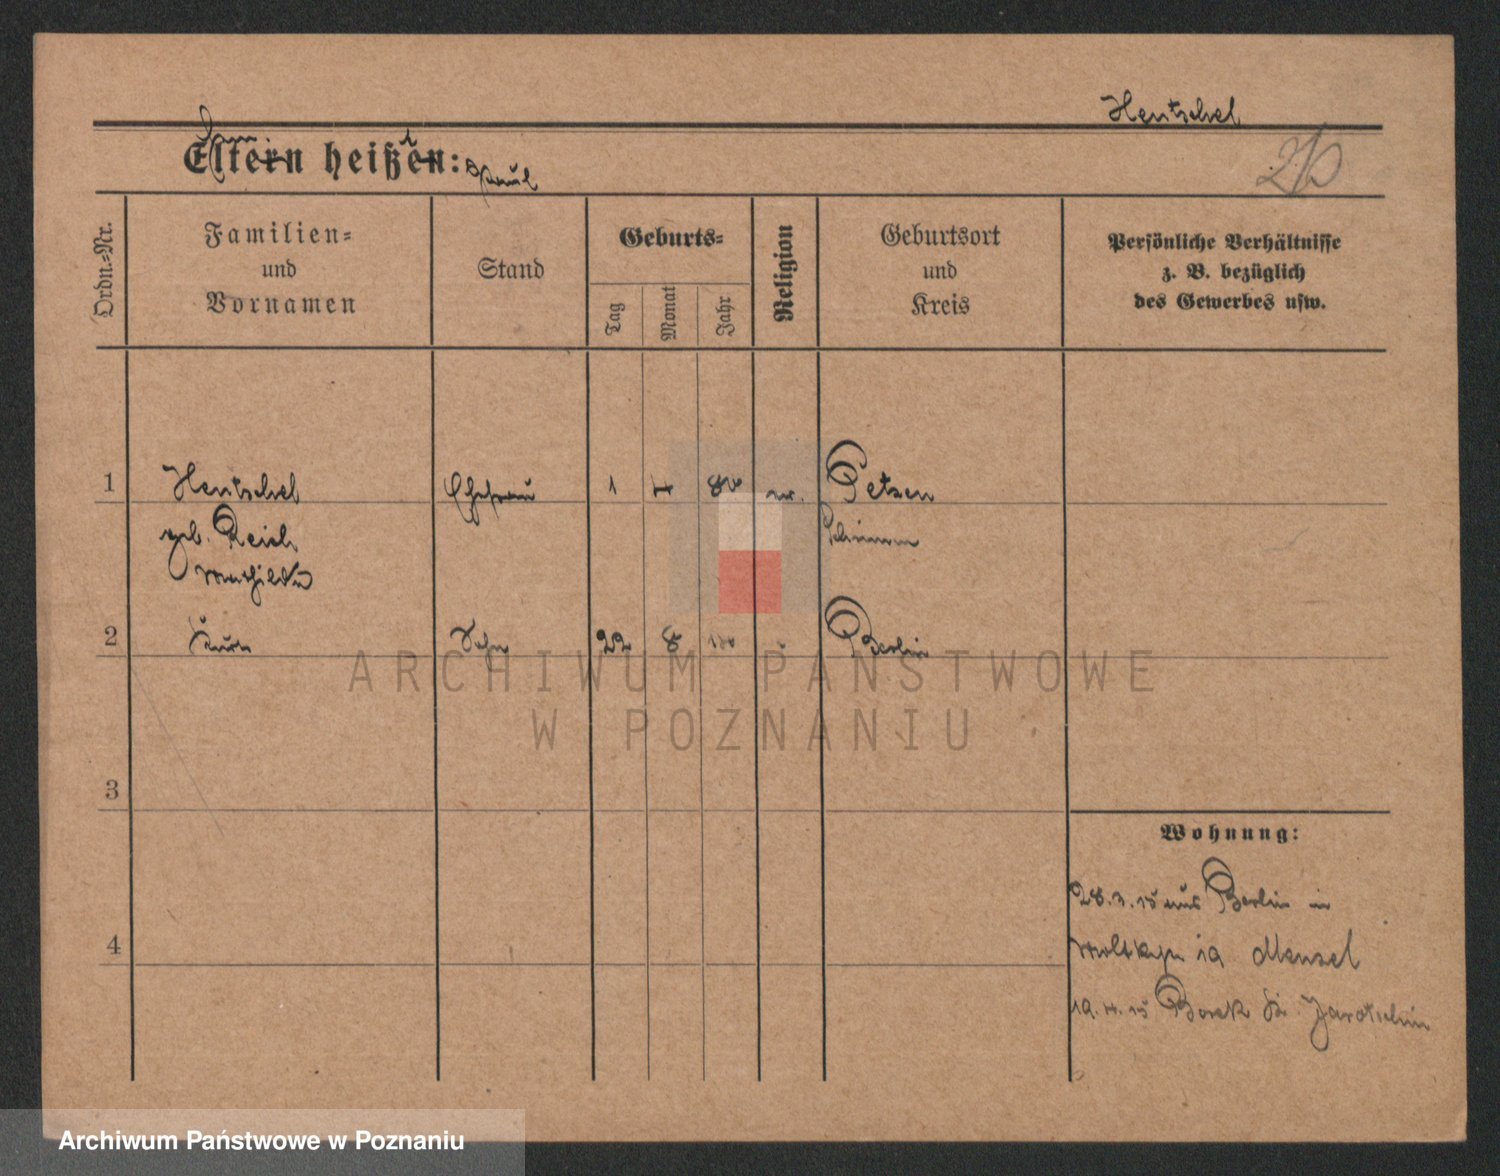 Hentschel
Eltern heißen: Paul
Ordn.-Nr.
Familien-
und
Vornamen
Stand
Geburts-
Tag
Monat
Jahr
Religion
Geburtsort
und
Kreis
Persönliche Verhältnisse
z. B. bezüglich
des Gewerbes usw.
1 Hentschel Ehefrau 1 4 80 ev. Petzen
geb. Reich
Mathilde
2 Kurt Sohn 22 8 Berlin
3
4
Wohnung:
28.3.15 aus Berlin in
Moltkestr 19 Menzel
19.4.15 Borek Kr. Jarotschin
ARCHIWUM PAŃSTWOWE
W POZNANIU
Archiwum Państwowe w Poznaniu